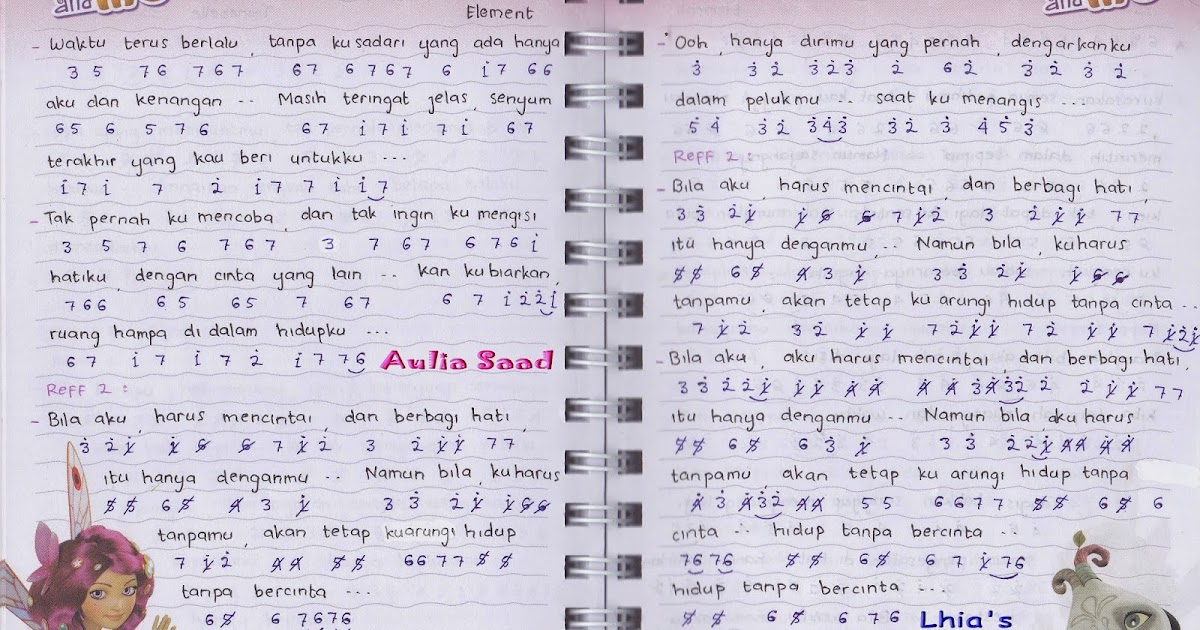 Element
- Waktu terus berlalu, tanpa kusadari yang ada hanya
3 5 7 6 7 6 7 6 7 6 7 6 7 6 1̇ 7 6 6
aku dan kenangan .. Masih teringat jelas, senyum
6 5 6 5 7 6 6 7 1̇ 7 1̇ 7 1̇ 6 7
terakhir yang kau beri untukku ...
1̇ 7 1̇ 7 2̇ 1̇ 7 7 1̇ 1̇ 7
- Tak pernah ku mencoba, dan tak ingin ku mengisi
3 5 7 6 7 6 7 3 7 6 7 6 7 6 1̇
hatiku, dengan cinta yang lain .. kan kubiarkan,
7 6 6 6 5 6 5 7 6 7 6 7 1̇ 2̇ 2̇ 1̇
ruang hampa di dalam hidupku ...
6 7 1̇ 7 1̇ 7 2̇ 1̇ 7 7 6
Aulia Saad
Reff 2 :
- Bila aku, harus mencintai, dan berbagi hati,
3̇ 2̇ 1̸̇ 1̸̇ 6̸ 6̸ 7 1̸̇ 2̇ 3 2̇ 1̸̇ 1̸̇ 7 7
itu hanya denganmu .. Namun bila, kuharus
5̸ 5̸ 6 5̸ 4̸ 3 1̸̇ 3 3̇ 2̇ 1̸̇ 1̸̇ 6̸ 6̸
tanpamu, akan tetap kuarungi hidup
7 1̸̇ 2̇ 4̸ 4̸ 5̸ 5̸ 6 6 7 7 5̸ 5̸
tanpa bercinta ...
6 5̸ 6 7 6 7 6
- Ooh, hanya dirimu yang pernah, dengarkanku
3̇ 3̇ 2̇ 3̇ 2̇ 3̇ 2̇ 6 2̇ 3̇ 2̇ 3̇ 2̇
dalam pelukmu ... saat ku menangis ...
5̇ 4̇ 3̇ 2̇ 3̇ 4̇ 3̇ 3̇ 2̇ 3̇ 4̇ 5̇ 3̇
Reff 2 :
- Bila aku, harus mencintai, dan berbagi hati,
3 3̇ 2̇ 1̸̇ 1̸̇ 6̸ 6̸ 7 1̸̇ 2̇ 3 2̇ 1̸̇ 1̸̇ 7 7
itu hanya denganmu .. Namun bila, kuharus
5̸ 5̸ 6 5̸ 4̸ 3 1̸̇ 3 3̇ 2̇ 1̸̇ 1̸̇ 6̸ 6̸
tanpamu, akan tetap ku arungi hidup tanpa cinta ..
7 1̸̇ 2̇ 3 2̇ 1̸̇ 1̸̇ 7 2̇ 1̸̇ 1̸̇ 7 2̇ 1̸̇ 1̸̇ 7 1̸̇ 2̇ 1̸̇
- Bila aku, aku harus mencintai, dan berbagi hati,
3 3̇ 2̇ 2̇ 1̸̇ 1̸̇ 1̸̇ 4̸̇ 4̸̇ 4̸̇ 4̸̇ 3̇ 4̸̇ 3̇ 2̇ 2̇ 2̇ 1̸̇ 1̸̇ 7 7
itu hanya denganmu .. Namun bila, aku harus
5̸ 5̸ 6 5̸ 6 3̇ 1̸̇ 3 3̇ 2̇ 2̇ 1̸̇ 4̸̇ 4̸̇ 4̸̇ 4̸̇
tanpamu, akan tetap ku arungi hidup tanpa
4̸̇ 3̇ 4̸̇ 3̇ 2̇ 4̸ 4̸ 5 5 6 6 7 7 5̸ 5̸ 6 5̸ 6
cinta .. hidup tanpa bercinta ..
7 6 7 6 5̸ 5̸ 6 5̸ 6 7 1̸̇ 7 6
hidup tanpa bercinta ...
5̸ 5̸ 6 5̸ 6 7 6
Lhia's